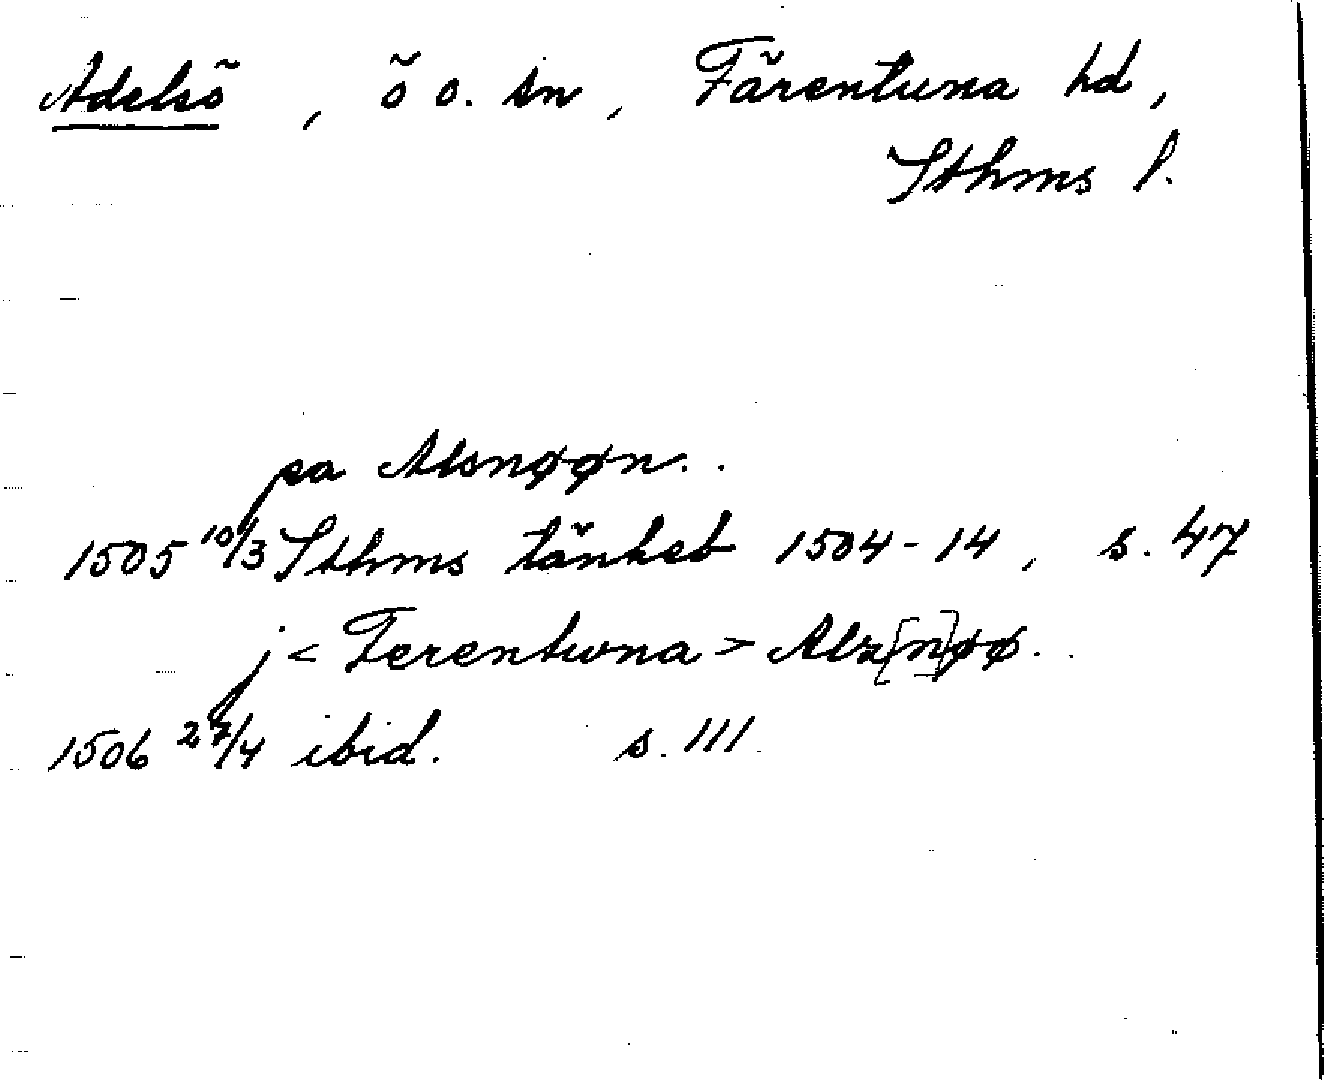 Adelsö, ö o. sn, Färentuna hd,
Sthms l.
pa Alsnøøn..
1505 10/3 Sthms tänkeb 1504-14, s. 47
j <Ferentwna> Alz[n]øø..
1506 27/4 ibid. s. 111